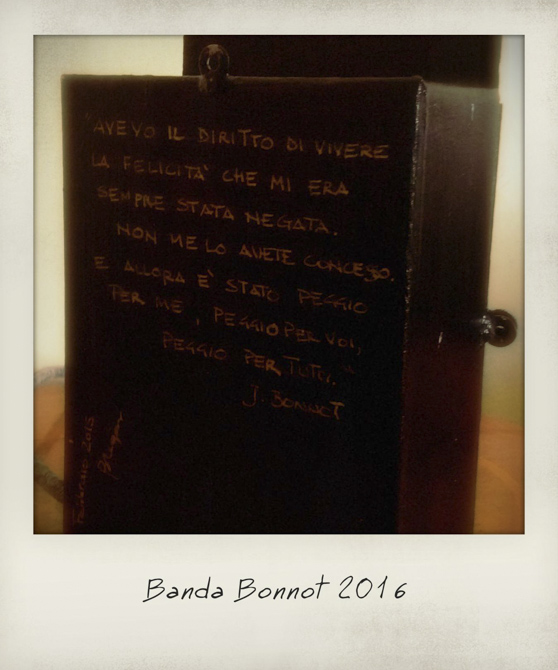 "AVEVO IL DIRITTO DI VIVERE
LA FELICITA' CHE MI ERA
SEMPRE STATA NEGATA.
NON ME LO AVETE CONCESSO.
E ALLORA E' STATO PEGGIO
PER ME, PEGGIO PER VOI,
PEGGIO PER TUTTI."
J. BONNOT
2015
Banda Bonnot 2016